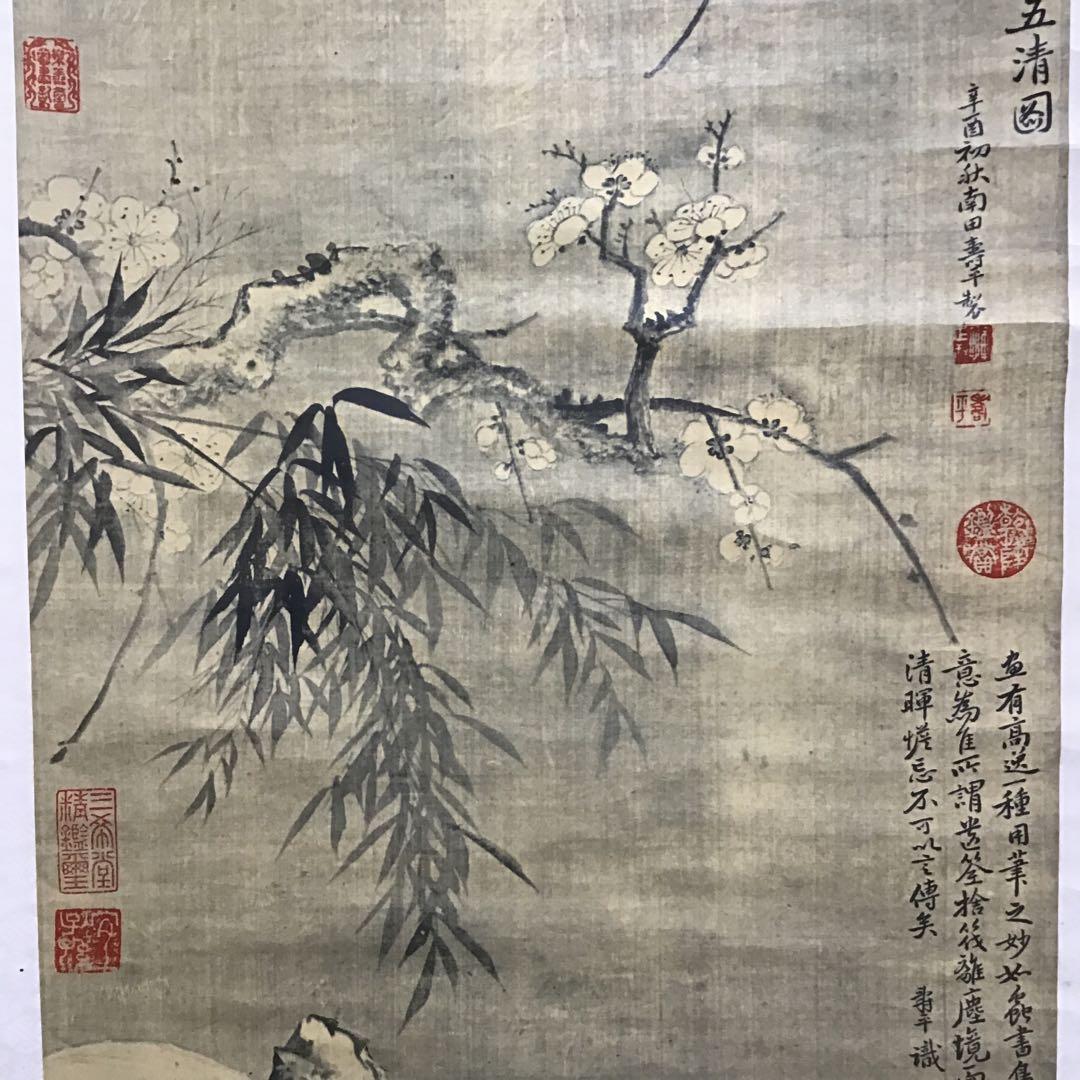 五清圖
辛酉初秋南田壽平製
畫有高逸一種用筆之妙如蟲書鳥
意為佳所謂遺筌捨筏離塵境而
清暉慌忘不可以言傳矣
壽平識
乾隆御覽
三希堂精鑑璽
宜子孫